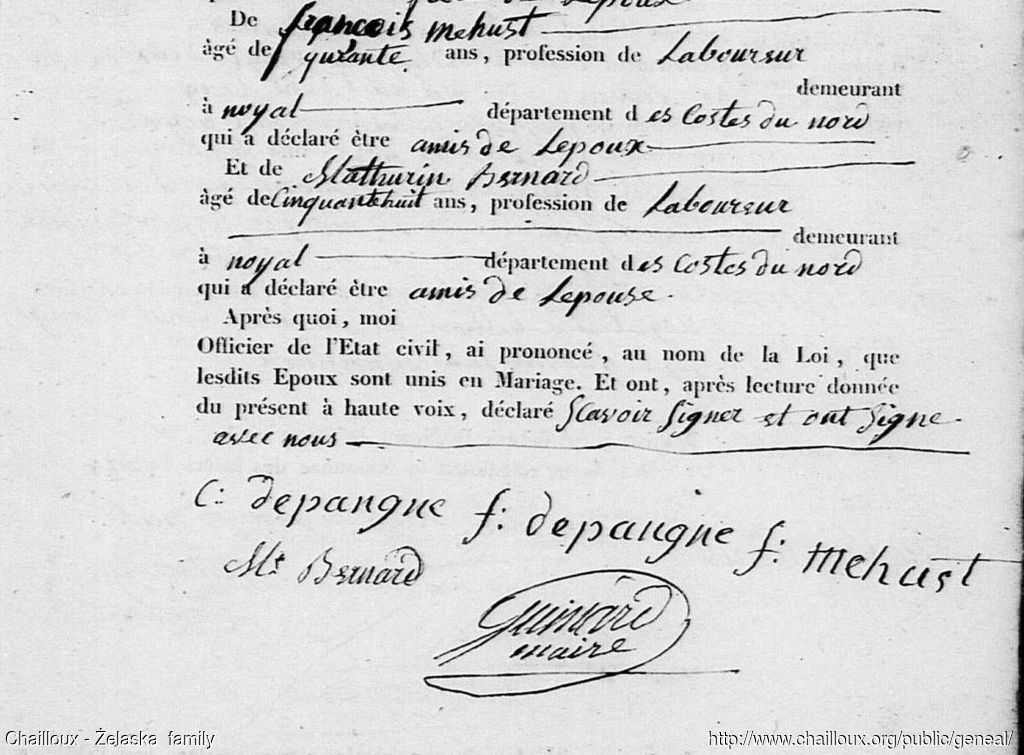 De françois mehust
âgé de qurante ans, profession de Laboureur
demeurant
à noyal département des Costes du nord
qui a déclaré être amis de Lepoux
Et de Mathurin Bernard
âgé de Cinquantehuit ans, profession de Laboureur
demeurant
à noyal département des Costes du nord
qui a déclaré être amis de Lepouse.
Après quoi, moi
Officier de l'Etat civil, ai prononcé, au nom de la Loi, que
lesdits Epoux sont unis en Mariage. Et ont, après lecture donnée
du présent à haute voix, déclaré Scavoir Signer et ont Signe
avec nous
C: depangne f: depangne f: mehust
Mt Bernard
Guimard
maire
Chailloux - Żelaska family http://www.chailloux.org/public/geneal/